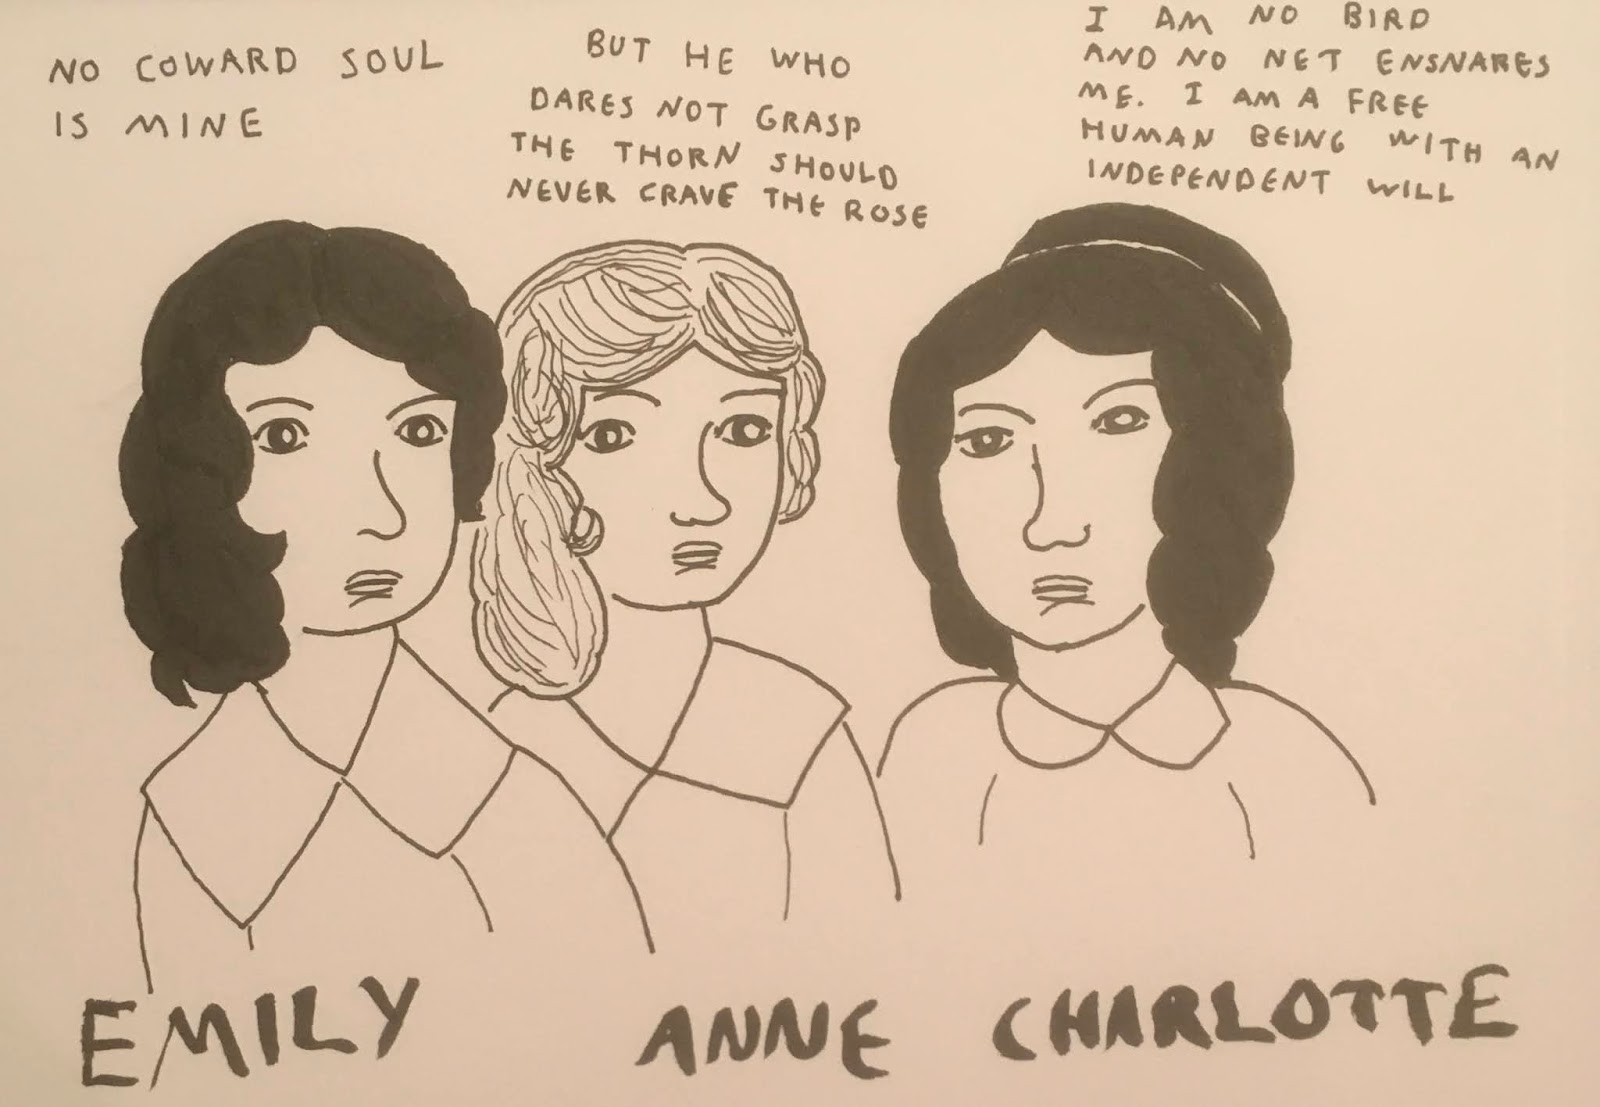 NO COWARD SOUL
IS MINE
BUT HE WHO
DARES NOT GRASP
THE THORN SHOULD
NEVER CRAVE THE ROSE
I AM NO BIRD
AND NO NET ENSNARES
ME. I AM A FREE
HUMAN BEING WITH AN
INDEPENDENT WILL
EMILY
ANNE
CHARLOTTE